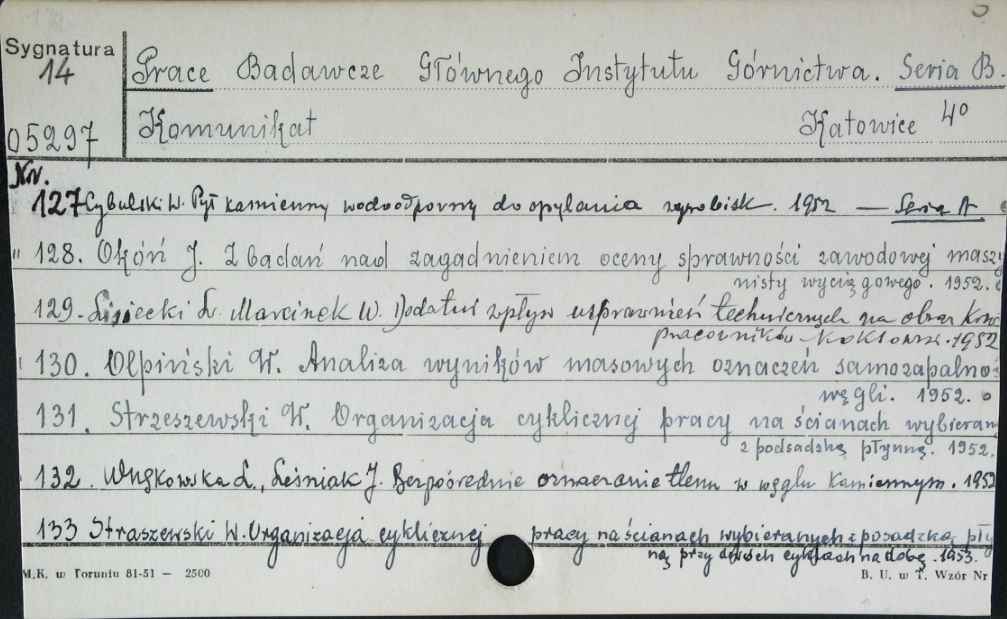 Sygnatura
14
Prace Badawcze Głównego Instytutu Górnictwa. Seria B.
05297
Komunikat Katowice 4°
Nr.
127 Cybulski W. Pył kamienny wodoodporny do opylania wyrobisk. 1952 — Seria A
" 128. Okóń J. Z badań nad zagadnieniem oceny sprawności zawodowej maszy
nisty wyciągowego. 1952.
129. Lisiecki L. Marcinek W. Dodatni wpływ usprawnień technicznych na obraz
pracowników 1952
130. Olpiński W. Analiza wyników masowych oznaczeń samozapalno-
węgli. 1952.
131. Strzeszewski W. Organizacja cyklicznej pracy na ścianach wybieran
z podsadzką płynną. 1952.
132. L., Leśniak J. Bezpośrednie oznaczanie tlenu w węglu kamiennym. 1953
133 Straszewski W. Organizacja cyklicznej pracy na ścianach wybieranych z posadzką pły
ną przy dwóch cyklach na dobę. 1953.
M.K. w Toruniu 81-51 — 2500 B. U. w T. Wzór Nr